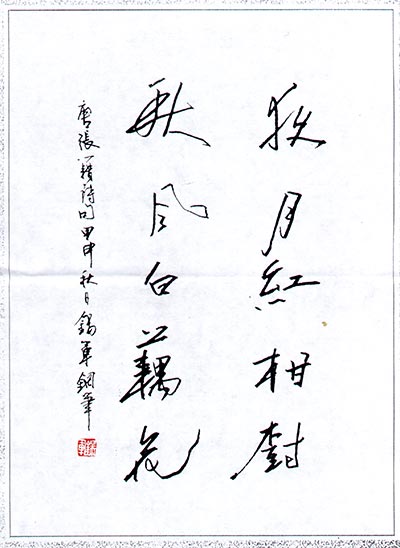 夜月紅柑樹
秋風白藕花
唐張籍詩句甲申秋日錫軍鋼筆